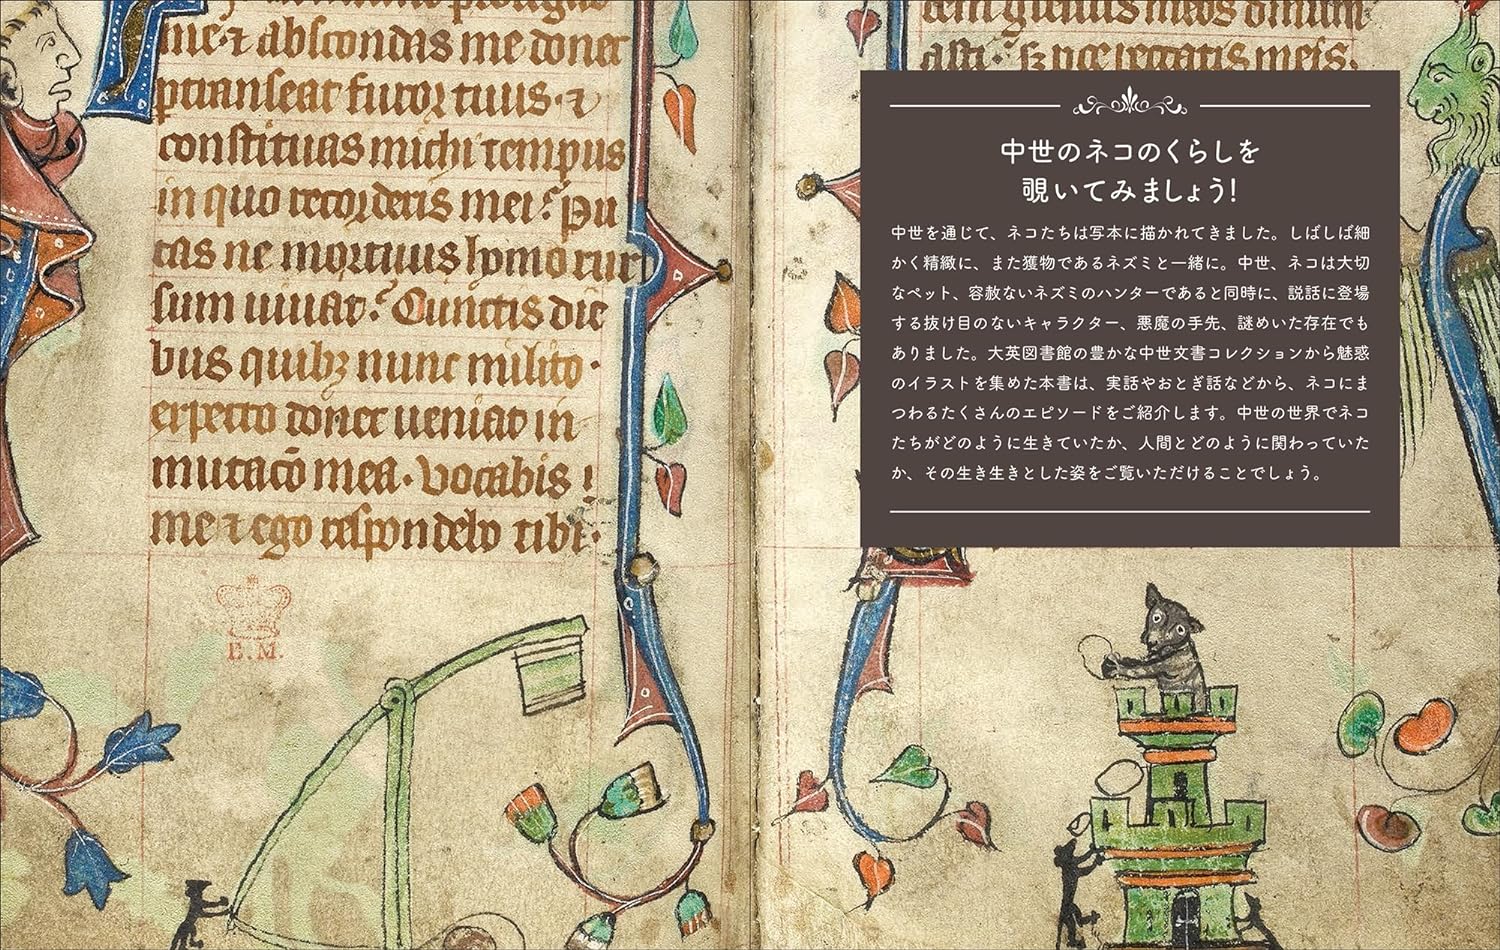 me · ⁊ abscondas me donec
ptranseat furor tuus · ⁊
constituas michi tempus
in quo recorderis mei? Pu
tas ne mortuus homo rur
sum uiuat? Cunctis die
bus quibꝫ nunc milito ·
expecto donec ueniat in
mutacō mea · vocabis
me ⁊ ego respondebo tibi ·
B. M.
中世のネコのくらしを
覗いてみましょう!
中世を通じて、ネコたちは写本に描かれてきました。しばしば細
かく精緻に、また獲物であるネズミと一緒に。中世、ネコは大切
なペット、容赦ないネズミのハンターであると同時に、説話に登場
する抜け目のないキャラクター、悪魔の手先、謎めいた存在でも
ありました。大英図書館の豊かな中世文書コレクションから魅惑
のイラストを集めた本書は、実話やおとぎ話などから、ネコにま
つわるたくさんのエピソードをご紹介します。中世の世界でネコ
たちがどのように生きていたか、人間とどのように関わっていた
か、その生き生きとした姿をご覧いただけることでしょう。